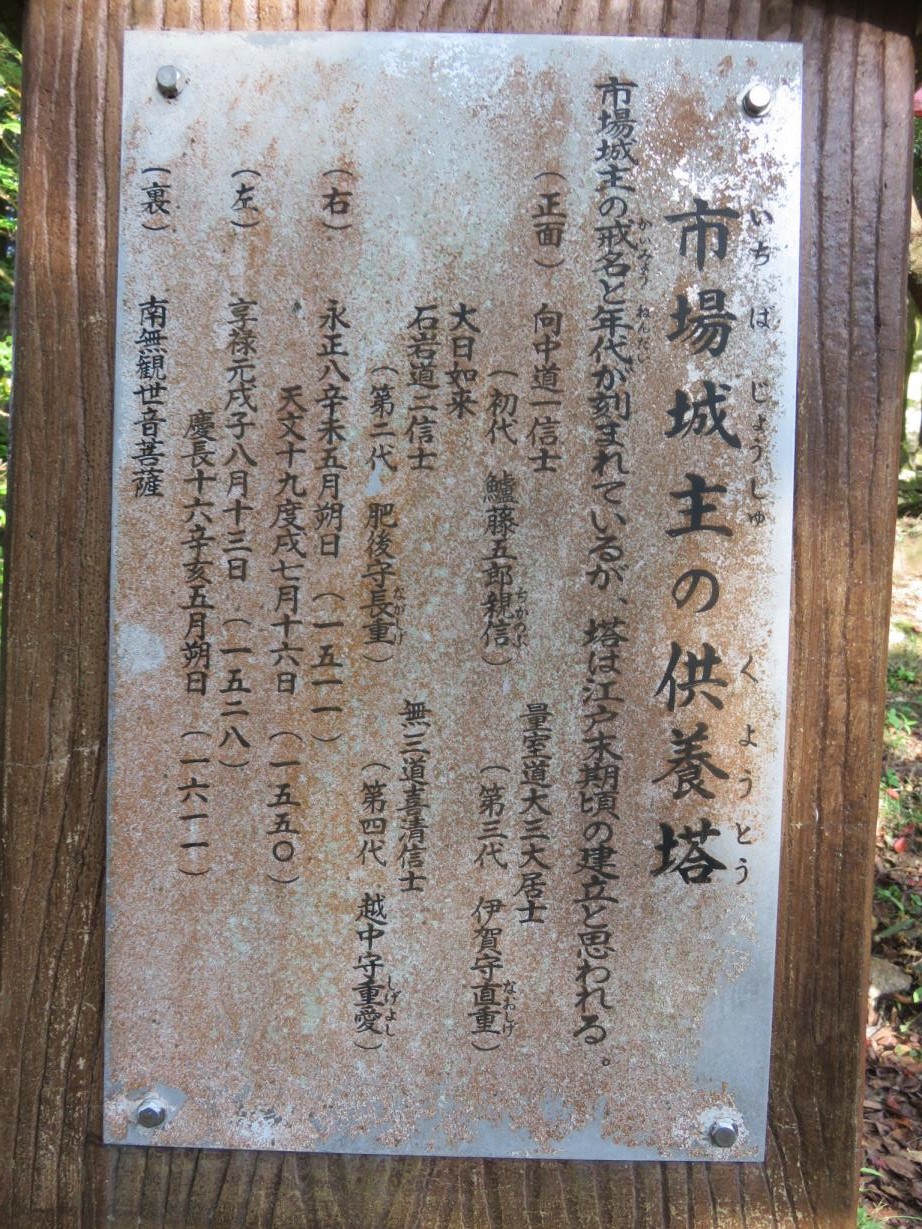 市場城主の供養塔
いちばじょうしゅ くようとう
市場城主の戒名と年代が刻まれているが、塔は江戸末期頃の建立と思われる。
かいみょう ねんだい
(正面) 向中道一信士 量室道大三大居士
(初代 鱸藤五郎親信) (第三代 伊賀守直重)
ちかのぶ なおしげ
大日如来
石岩道二信士 無三道喜清信士
(第二代 肥後守長重) (第四代 越中守重愛)
ながしげ しげよし
(右) 永正八辛未五月朔日 (一五一一)
天文十九度戌七月十六日 (一五五〇)
(左) 享禄元戌子八月十三日 (一五二八)
慶長十六辛亥五月朔日 (一六一一)
(裏) 南無観世音菩薩